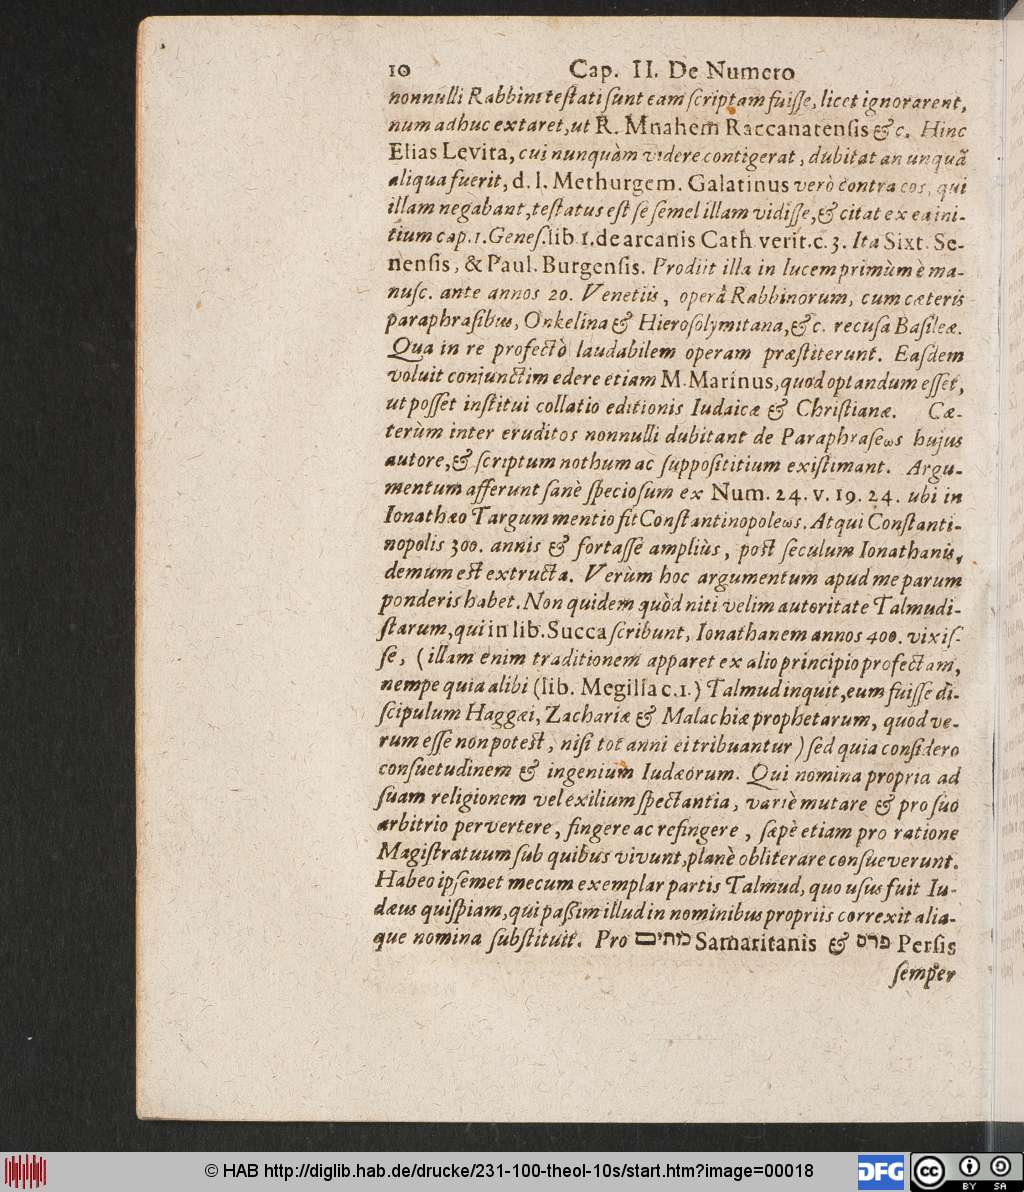 10 Cap. II. De Numero
nonnulli Rabbini testati sunt eam scriptam fuisse, licet ignorarent,
num adhuc extaret, ut R. Mnahem Raccanatensis & c. Hinc
Elias Levita, cui nunquàm videre contigerat, dubitat an unquã
aliqua fuerit, d. l. Methurgem. Galatinus verò contra eos, qui
illam negabant, testatus est se semel illam vidisse, & citat ex ea ini-
tium cap. 1. Genes. lib 1. de arcanis Cath verit. c. 3. Ita Sixt. Se-
nensis, & Paul. Burgensis. Prodiit illa in lucem primùm è ma-
nusc. ante annos 20. Venetiis, operâ Rabbinorum, cum cæteris
paraphrasibus, Onkelina & Hierosolymitana, & c. recusa Basileæ.
Qua in re profectò laudabilem operam præstiterunt. Easdem
voluit conjunctim edere etiam M. Marinus, quod optandum esset,
ut posset institui collatio editionis Iudaicæ & Christianæ. Cæ-
terùm inter eruditos nonnulli dubitant de Paraphraseωs hujus
autore, & scriptum nothum ac supposititium existimant. Argu-
mentum afferunt sanè speciosum ex Num. 24. v. 19. 24. ubi in
Ionathæo Targum mentio fit Constantinopoleωs. Atqui Constanti-
nopolis 300. annis & fortasse ampliùs, post seculum Ionathanis,
demum est extructa. Verùm hoc argumentum apud me parum
ponderis habet. Non quidem quòd niti velim autoritate Talmudi-
starum, qui in lib. Succa scribunt, Ionathanem annos 400. vixis-
se, (illam enim traditionem apparet ex alio principio profectam,
nempe quia alibi (lib. Megilla c. 1.) Talmud inquit, eum fuisse di-
scipulum Haggæi, Zachariæ & Malachiæ prophetarum, quod ve-
rum esse non potest, nisi tot anni ei tribuantur) sed quia considero
consuetudinem & ingenium Iudæorum. Qui nomina propria ad
suam religionem vel exilium spectantia, variè mutare & pro suo
arbitrio pervertere, fingere ac refingere, sæpè etiam pro ratione
Magistratuum sub quibus vivunt, planè obliterare consueverunt.
Habeo ipsemet mecum exemplar partis Talmud, quo usus fuit Iu-
dæus quispiam, qui passim illud in nominibus propriis correxit alia-
que nomina substituit. Pro כותיים Samaritanis & פרס Persis
semper
© HAB http://diglib.hab.de/drucke/231-100-theol-10s/start.htm?image=00018
DFG
cc BY SA